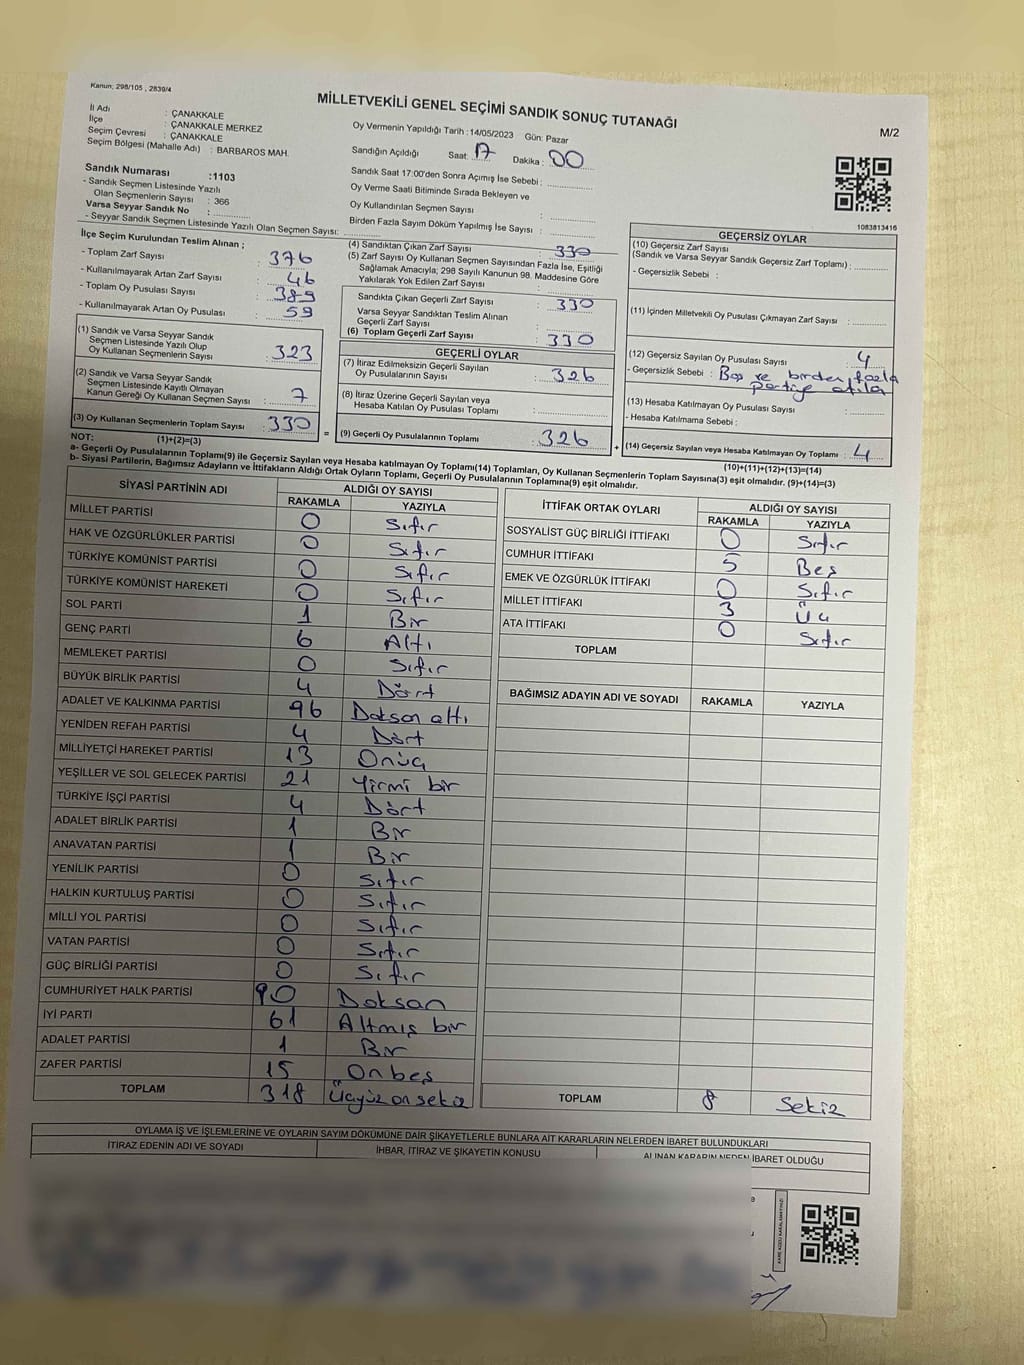 Kanun; 298/105 , 2839/4
MİLLETVEKİLİ GENEL SEÇİMİ SANDIK SONUÇ TUTANAĞI
M/2
İl Adı : ÇANAKKALE
İlçe : ÇANAKKALE MERKEZ
Seçim Çevresi : ÇANAKKALE
Seçim Bölgesi (Mahalle Adı) : BARBAROS MAH.
Oy Vermenin Yapıldığı Tarih : 14/05/2023 Gün: Pazar
Sandığın Açıldığı Saat: 17 Dakika : 00
Sandık Saat 17:00'den Sonra Açımış İse Sebebi :
Oy Verme Saati Bitiminde Sırada Bekleyen ve
Oy Kullandırılan Seçmen Sayısı :
Birden Fazla Sayım Döküm Yapılmış İse Sayısı :
Sandık Numarası :1103
- Sandık Seçmen Listesinde Yazılı
Olan Seçmenlerin Sayısı : 366
Varsa Seyyar Sandık No :
- Seyyar Sandık Seçmen Listesinde Yazılı Olan Seçmen Sayısı:
1083813416
İlçe Seçim Kurulundan Teslim Alınan ;
- Toplam Zarf Sayısı : 376
- Kullanılmayarak Artan Zarf Sayısı : 46
- Toplam Oy Pusulası Sayısı : 389
- Kullanılmayarak Artan Oy Pusulası : 59
(1) Sandık ve Varsa Seyyar Sandık
Seçmen Listesinde Yazılı Olup
Oy Kullanan Seçmenlerin Sayısı : 323
(2) Sandık ve Varsa Seyyar Sandık
Seçmen Listesinde Kayıtlı Olmayan
Kanun Gereği Oy Kullanan Seçmen Sayısı : 7
(3) Oy Kullanan Seçmenlerin Toplam Sayısı : 330
(1)+(2)=(3)
(4) Sandıktan Çıkan Zarf Sayısı : 330
(5) Zarf Sayısı Oy Kullanan Seçmen Sayısından Fazla İse, Eşitliği
Sağlamak Amacıyla; 298 Sayılı Kanunun 98. Maddesine Göre
Yakılarak Yok Edilen Zarf Sayısı :
Sandıkta Çıkan Geçerli Zarf Sayısı : 330
Varsa Seyyar Sandıktan Teslim Alınan
Geçerli Zarf Sayısı :
(6) Toplam Geçerli Zarf Sayısı : 330
GEÇERLİ OYLAR
(7) İtiraz Edilmeksizin Geçerli Sayılan
Oy Pusulalarının Sayısı : 326
(8) İtiraz Üzerine Geçerli Sayılan veya
Hesaba Katılan Oy Pusulası Toplamı :
= (9) Geçerli Oy Pusulalarının Toplamı : 326
GEÇERSİZ OYLAR
(10) Geçersiz Zarf Sayısı
(Sandık ve Varsa Seyyar Sandık Geçersiz Zarf Toplamı) :
- Geçersizlik Sebebi :
(11) İçinden Milletvekili Oy Pusulası Çıkmayan Zarf Sayısı :
(12) Geçersiz Sayılan Oy Pusulası Sayısı : 4
- Geçersizlik Sebebi : Boş ve birden fazla
partiye atıla
(13) Hesaba Katılmayan Oy Pusulası Sayısı :
- Hesaba Katılmama Sebebi :
+ (14) Geçersiz Sayılan veya Hesaba Katılmayan Oy Toplamı : 4
(10)+(11)+(12)+(13)=(14)
NOT:
a- Geçerli Oy Pusulalarının Toplamı(9) ile Geçersiz Sayılan veya Hesaba katılmayan Oy Toplamı(14) Toplamları, Oy Kullanan Seçmenlerin Toplam Sayısına(3) eşit olmalıdır. (9)+(14)=(3)
b- Siyasi Partilerin, Bağımsız Adayların ve İttifakların Aldığı Ortak Oyların Toplamı, Geçerli Oy Pusulalarının Toplamına(9) eşit olmalıdır.
SİYASİ PARTİNİN ADI ALDIĞI OY SAYISI
RAKAMLA YAZIYLA
MİLLET PARTİSİ 0 Sıfır
HAK VE ÖZGÜRLÜKLER PARTİSİ 0 Sıfır
TÜRKİYE KOMÜNİST PARTİSİ 0 Sıfır
TÜRKİYE KOMÜNİST HAREKETİ 0 Sıfır
SOL PARTİ 1 Bir
GENÇ PARTİ 6 Altı
MEMLEKET PARTİSİ 0 Sıfır
BÜYÜK BİRLİK PARTİSİ 4 Dört
ADALET VE KALKINMA PARTİSİ 96 Doksan altı
YENİDEN REFAH PARTİSİ 4 Dört
MİLLİYETÇİ HAREKET PARTİSİ 13 Onüç
YEŞİLLER VE SOL GELECEK PARTİSİ 21 Yirmi bir
TÜRKİYE İŞÇİ PARTİSİ 4 Dört
ADALET BİRLİK PARTİSİ 1 Bir
ANAVATAN PARTİSİ 1 Bir
YENİLİK PARTİSİ 0 Sıfır
HALKIN KURTULUŞ PARTİSİ 0 Sıfır
MİLLİ YOL PARTİSİ 0 Sıfır
VATAN PARTİSİ 0 Sıfır
GÜÇ BİRLİĞİ PARTİSİ 0 Sıfır
CUMHURİYET HALK PARTİSİ 90 Doksan
İYİ PARTİ 61 Altmış bir
ADALET PARTİSİ 1 Bir
ZAFER PARTİSİ 15 Onbeş
TOPLAM 318 Üçyüz on sekiz
İTTİFAK ORTAK OYLARI ALDIĞI OY SAYISI
RAKAMLA YAZIYLA
SOSYALİST GÜÇ BİRLİĞİ İTTİFAKI 0 Sıfır
CUMHUR İTTİFAKI 5 Beş
EMEK VE ÖZGÜRLÜK İTTİFAKI 0 Sıfır
MİLLET İTTİFAKI 3 Üç
ATA İTTİFAKI 0 Sıfır
TOPLAM
BAĞIMSIZ ADAYIN ADI VE SOYADI RAKAMLA YAZIYLA
TOPLAM 8 Sekiz
OYLAMA İŞ VE İŞLEMLERİNE VE OYLARIN SAYIM DÖKÜMÜNE DAİR ŞİKAYETLERLE BUNLARA AİT KARARLARIN NELERDEN İBARET BULUNDUKLARI
İTİRAZ EDENİN ADI VE SOYADI İHBAR, İTİRAZ VE ŞİKAYETİN KONUSU ALINAN KARARIN NEDEN İBARET OLDUĞU